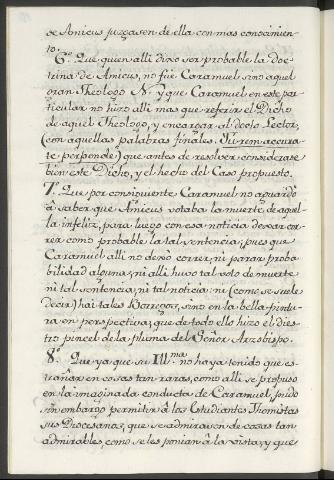 se Amicus juzgasen de ella con mas conocimien-
to.
6.º Que quien alli dixo ser probable la doc-
trina de Amicus, no fue Caramuel sino aquel
gran Theologo N. y que Caramuel en este par-
ticular no hizo alli mas que referir el Dicho
de aquel Theologo, y encargar al docto Lector,
(con aquellas palabras finales. Tu rem accura-
te perpende) que antes de resolver considerase
bien este Dicho, y el hecho del Caso propuesto.
7.º Que por consiguiente Caramuel no aguardó
à saber que Amicus votaba la muerte de aquel
la infeliz, para luego con esa noticia dexar cor-
rer como probable la tal sentencia; pues que
Caramuel alli no dexó correr, ni parar proba-
bilidad alguna; ni alli huvo tal voto de muerte
ni tal sentencia, ni tal noticia, ni (como se suele
decir) hai tales Borregos, sino en la bella pintu-
ra en perspectiva; que de todo ello hizo el dies-
tro pincel de la pluma del Señor Arzobispo.
8.º Que ya que su Ill.ma no haya tenido que es-
trañar en cosas tan raras, como alli se propuso
en la imaginada conducta de Caramuel, pudo
sin embargo permitir à los Estudiantes Thomistas
sus Diocesanos, que se admirasen de cosas tan
admirables, como se les ponian à la vista; y que